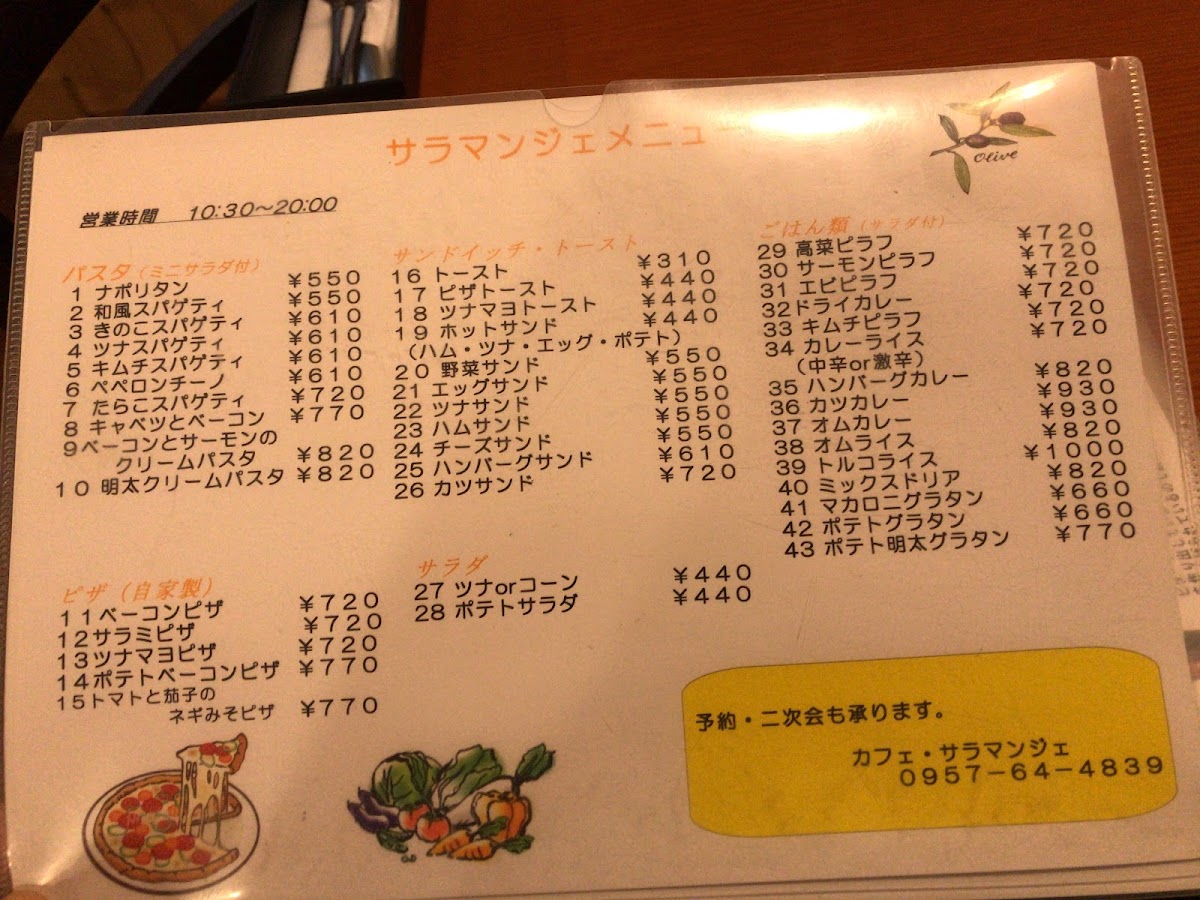 サラマンジェメニュー
Olive
営業時間 10:30～20:00
パスタ（ミニサラダ付）
1 ナポリタン ￥550
2 和風スパゲティ ￥550
3 きのこスパゲティ ￥610
4 ツナスパゲティ ￥610
5 キムチスパゲティ ￥610
6 ペペロンチーノ ￥610
7 たらこスパゲティ ￥720
8 キャベツとベーコン ￥770
9ベーコンとサーモンの
クリームパスタ ￥820
10 明太クリームパスタ ￥820
ピザ（自家製）
11ベーコンピザ ￥720
12サラミピザ ￥720
13ツナマヨピザ ￥720
14ポテトベーコンピザ ￥770
15トマトと茄子の
ネギみそピザ ￥770
サンドイッチ・トースト
16 トースト ￥310
17 ピザトースト ￥440
18 ツナマヨトースト ￥440
19 ホットサンド ￥440
（ハム・ツナ・エッグ・ポテト）
20 野菜サンド ￥550
21 エッグサンド ￥550
22 ツナサンド ￥550
23 ハムサンド ￥550
24 チーズサンド ￥550
25 ハンバーグサンド ￥610
26 カツサンド ￥720
サラダ
27 ツナorコーン ￥440
28 ポテトサラダ ￥440
ごはん類（サラダ付）
29 高菜ピラフ ￥720
30 サーモンピラフ ￥720
31 エビピラフ ￥720
32ドライカレー ￥720
33 キムチピラフ ￥720
34 カレーライス ￥720
（中辛or激辛）
35 ハンバーグカレー ￥820
36 カツカレー ￥930
37 オムカレー ￥930
38 オムライス ￥820
39 トルコライス ￥1000
40 ミックスドリア ￥820
41 マカロニグラタン ￥660
42 ポテトグラタン ￥660
43 ポテト明太グラタン ￥770
予約・二次会も承ります。
カフェ・サラマンジェ
0957-64-4839